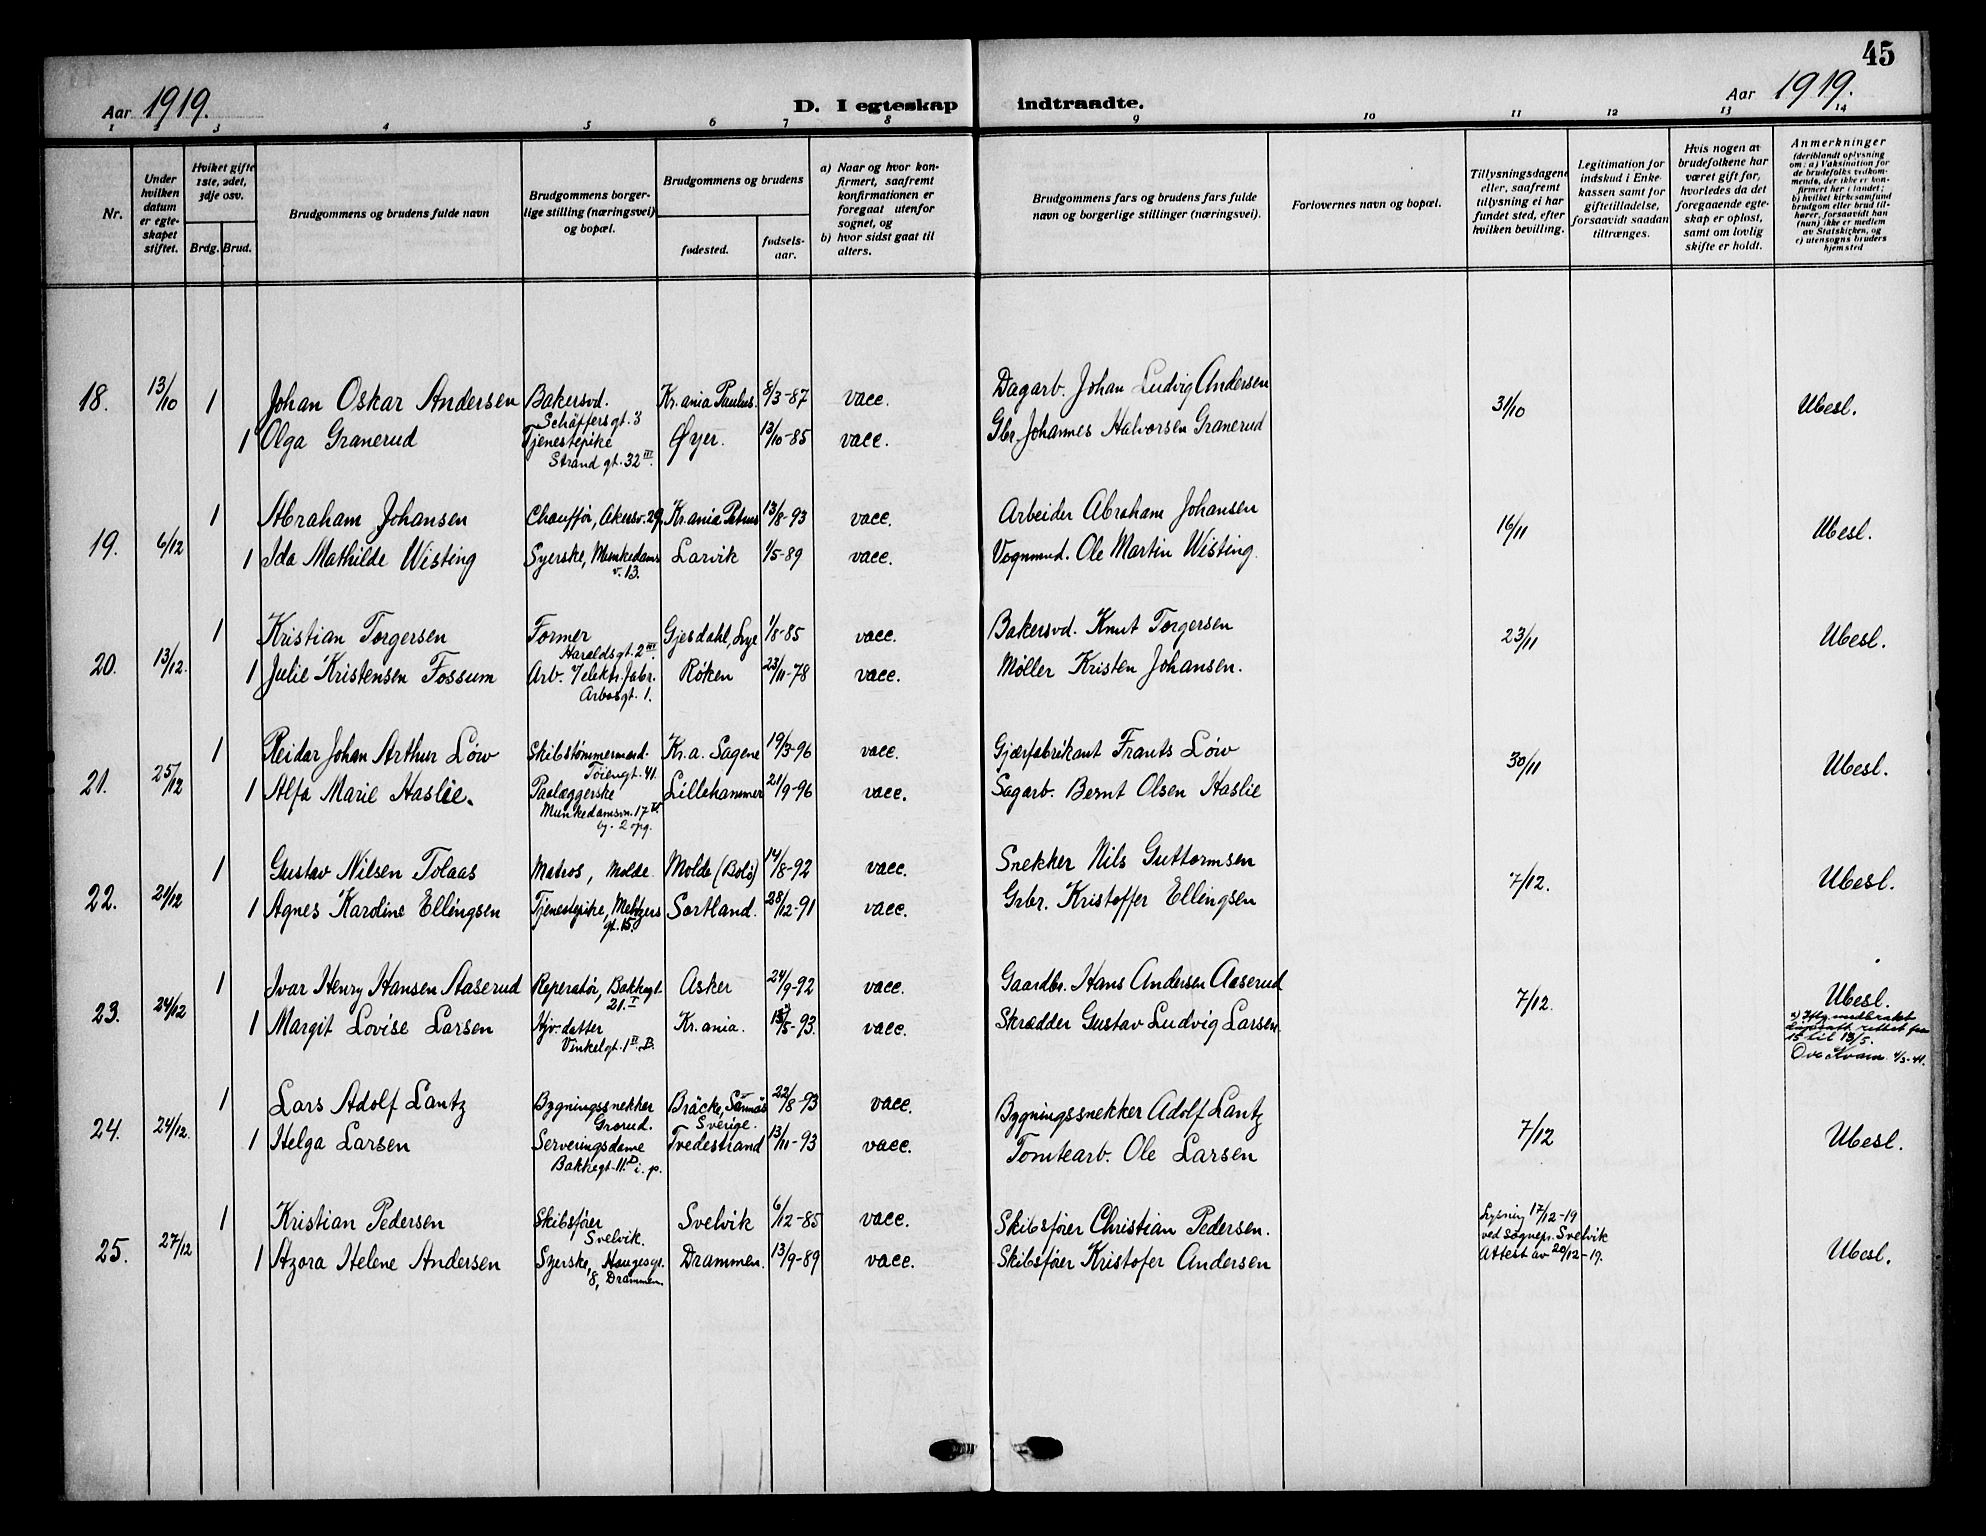 45
Aar 1919.
D. I egteskap indtraadte.
Aar 1919.
1 2 3 4 5 6 7 8 9 10 11 12 13 14
Nr.
Under hvilken datum er egteskapet stiftet.
Hvilket gifte 1ste, 2det, 3dje osv.
Brdg. Brud.
Brudgommens og brudens fulde navn
Brudgommens borgerlige stilling (næringsvei) og bopæl.
Brudgommens og brudens
fødested.
fødselsaar.
a) Naar og hvor konfirmert, saafremt konfirmationen er foregaat utenfor sognet, og
b) hvor sidst gaat til alters.
Brudgommens fars og brudens fars fulde navn og borgerlige stillinger (næringsvei).
Forlovernes navn og bopæl.
Tillysningsdagene eller, saafremt tillysning ei har fundet sted, efter hvilken bevilling.
Legitimation for indskud i Enkekassen samt for giftetilladelse, forsaavidt saadan tiltrænges.
Hvis nogen av brudefolkene har været gift før, hvorledes da det foregaaende egteskap er opløst, samt om lovlig skifte er holdt.
Anmerkninger (deriblandt oplysning om: a) Vaksination for de brudefolks vedkommende, der ikke er konfirmert her i landet; b) hvilket kirkesamfund brudgom eller brud tilhører, forsaavidt han (hun) ikke er medlem av Statskirken, og c) utensogns bruders hjemsted
18. 13/10 1 Johan Oskar Andersen Bakersvd. Schäffersgt. 3 Kr.ania Paulus. 8/3-87 vacc. Dagarb. Johan Ludvig Andersen 31/10 Ubesl.
1 Olga Granerud Tjenestepike Strandgt. 32 III. Øyer. 13/10-85 vacc. Gbr. Johannes Halvorsen Granerud
19. 6/12 1 Abraham Johansen Chauffør, Akersv. 29. Kr.ania Petrus 13/8-93 vacc. Arbeider Abraham Johansen 16/11 Ubesl.
1 Ida Mathilde Wisting Syerske, Munkedams v. 13. Larvik 1/5-89 vacc. Vognmnd. Ole Martin Wisting.
20. 13/12. 1 Kristian Torgersen Former Haraldsgt. 2 III. Gjesdahl, Lye 1/8-85 vacc. Bakersvd. Knut Torgersen 23/11 Ubesl.
1 Julie Kristensen Fossum Arb. v/ elektr. fabr. Arbosgt. 1. Röken 23/11-78 vacc. Møller Kristen Johansen.
21. 25/12 1 Reidar Johan Arthur Löw Skibstömmermand. Töiengt. 41. Kr.a. Sagene 19/3-96 vacc. Gjærfabrikant Frants Löw 30/11 Ubesl.
1 Alfa Marie Haslie. Paalæggerske Munkedamsvn. 17 IV by. 2 opg. Lillehammer 21/9-96 vacc. Sagarb. Bernt Olsen Haslie
22. 21/12 1 Gustav Nilsen Tolaas Matros, Molde. Molde (Bolsö) 14/8-92 vacc. Snekker Nils Guttormsen 7/12. Ubesl.
1 Agnes Karoline Ellingsen Tjenestepike, Meltzers gt. 15. Sortland. 28/12-91 vacc. Grbr. Kristoffer Ellingsen
23. 24/12 1 Ivar Henry Hansen Aaserud Reperatør, Bakkegt. 21. I Asker 24/9-92 vacc. Gaardbr. Hans Andersen Aaserud 7/12. Ubesl.
1 Margit Lovise Larsen Hjv. datter Vinkelgt. 1 II. B. Kr.ania. /5-93. vacc. Skrædder Gustav Ludvig Larsen.
rettet fra 15 til 13/5. Ove Kvam 4/3-41.
24. 24/12. 1 Lars Adolf Lantz Bygningssnekker Grorud. Bräcke, Sunnäs Sverige. 22/8-93 vacc. Bygningssnekker Adolf Lantz 7/12 Ubesl.
1 Helga Larsen Serveringsdame Bakkegt. 11 D i. p. Tvedestrand 13/11-93 vacc. Tomtearb. Ole Larsen
25. 27/12 1 Kristian Pedersen Skibsfører Svelvik. Svelvik 6/12-85 vacc. Skibsfører Christian Pedersen. Lysning 17/12-19 ved sognepr. Svelvik Attest av 20/12-19. Ubesl.
1 Azora Helene Andersen Syerske, Haugesgt. 8, Drammen. Drammen. 13/9-89 vacc. Skibsfører Kristofer Andersen